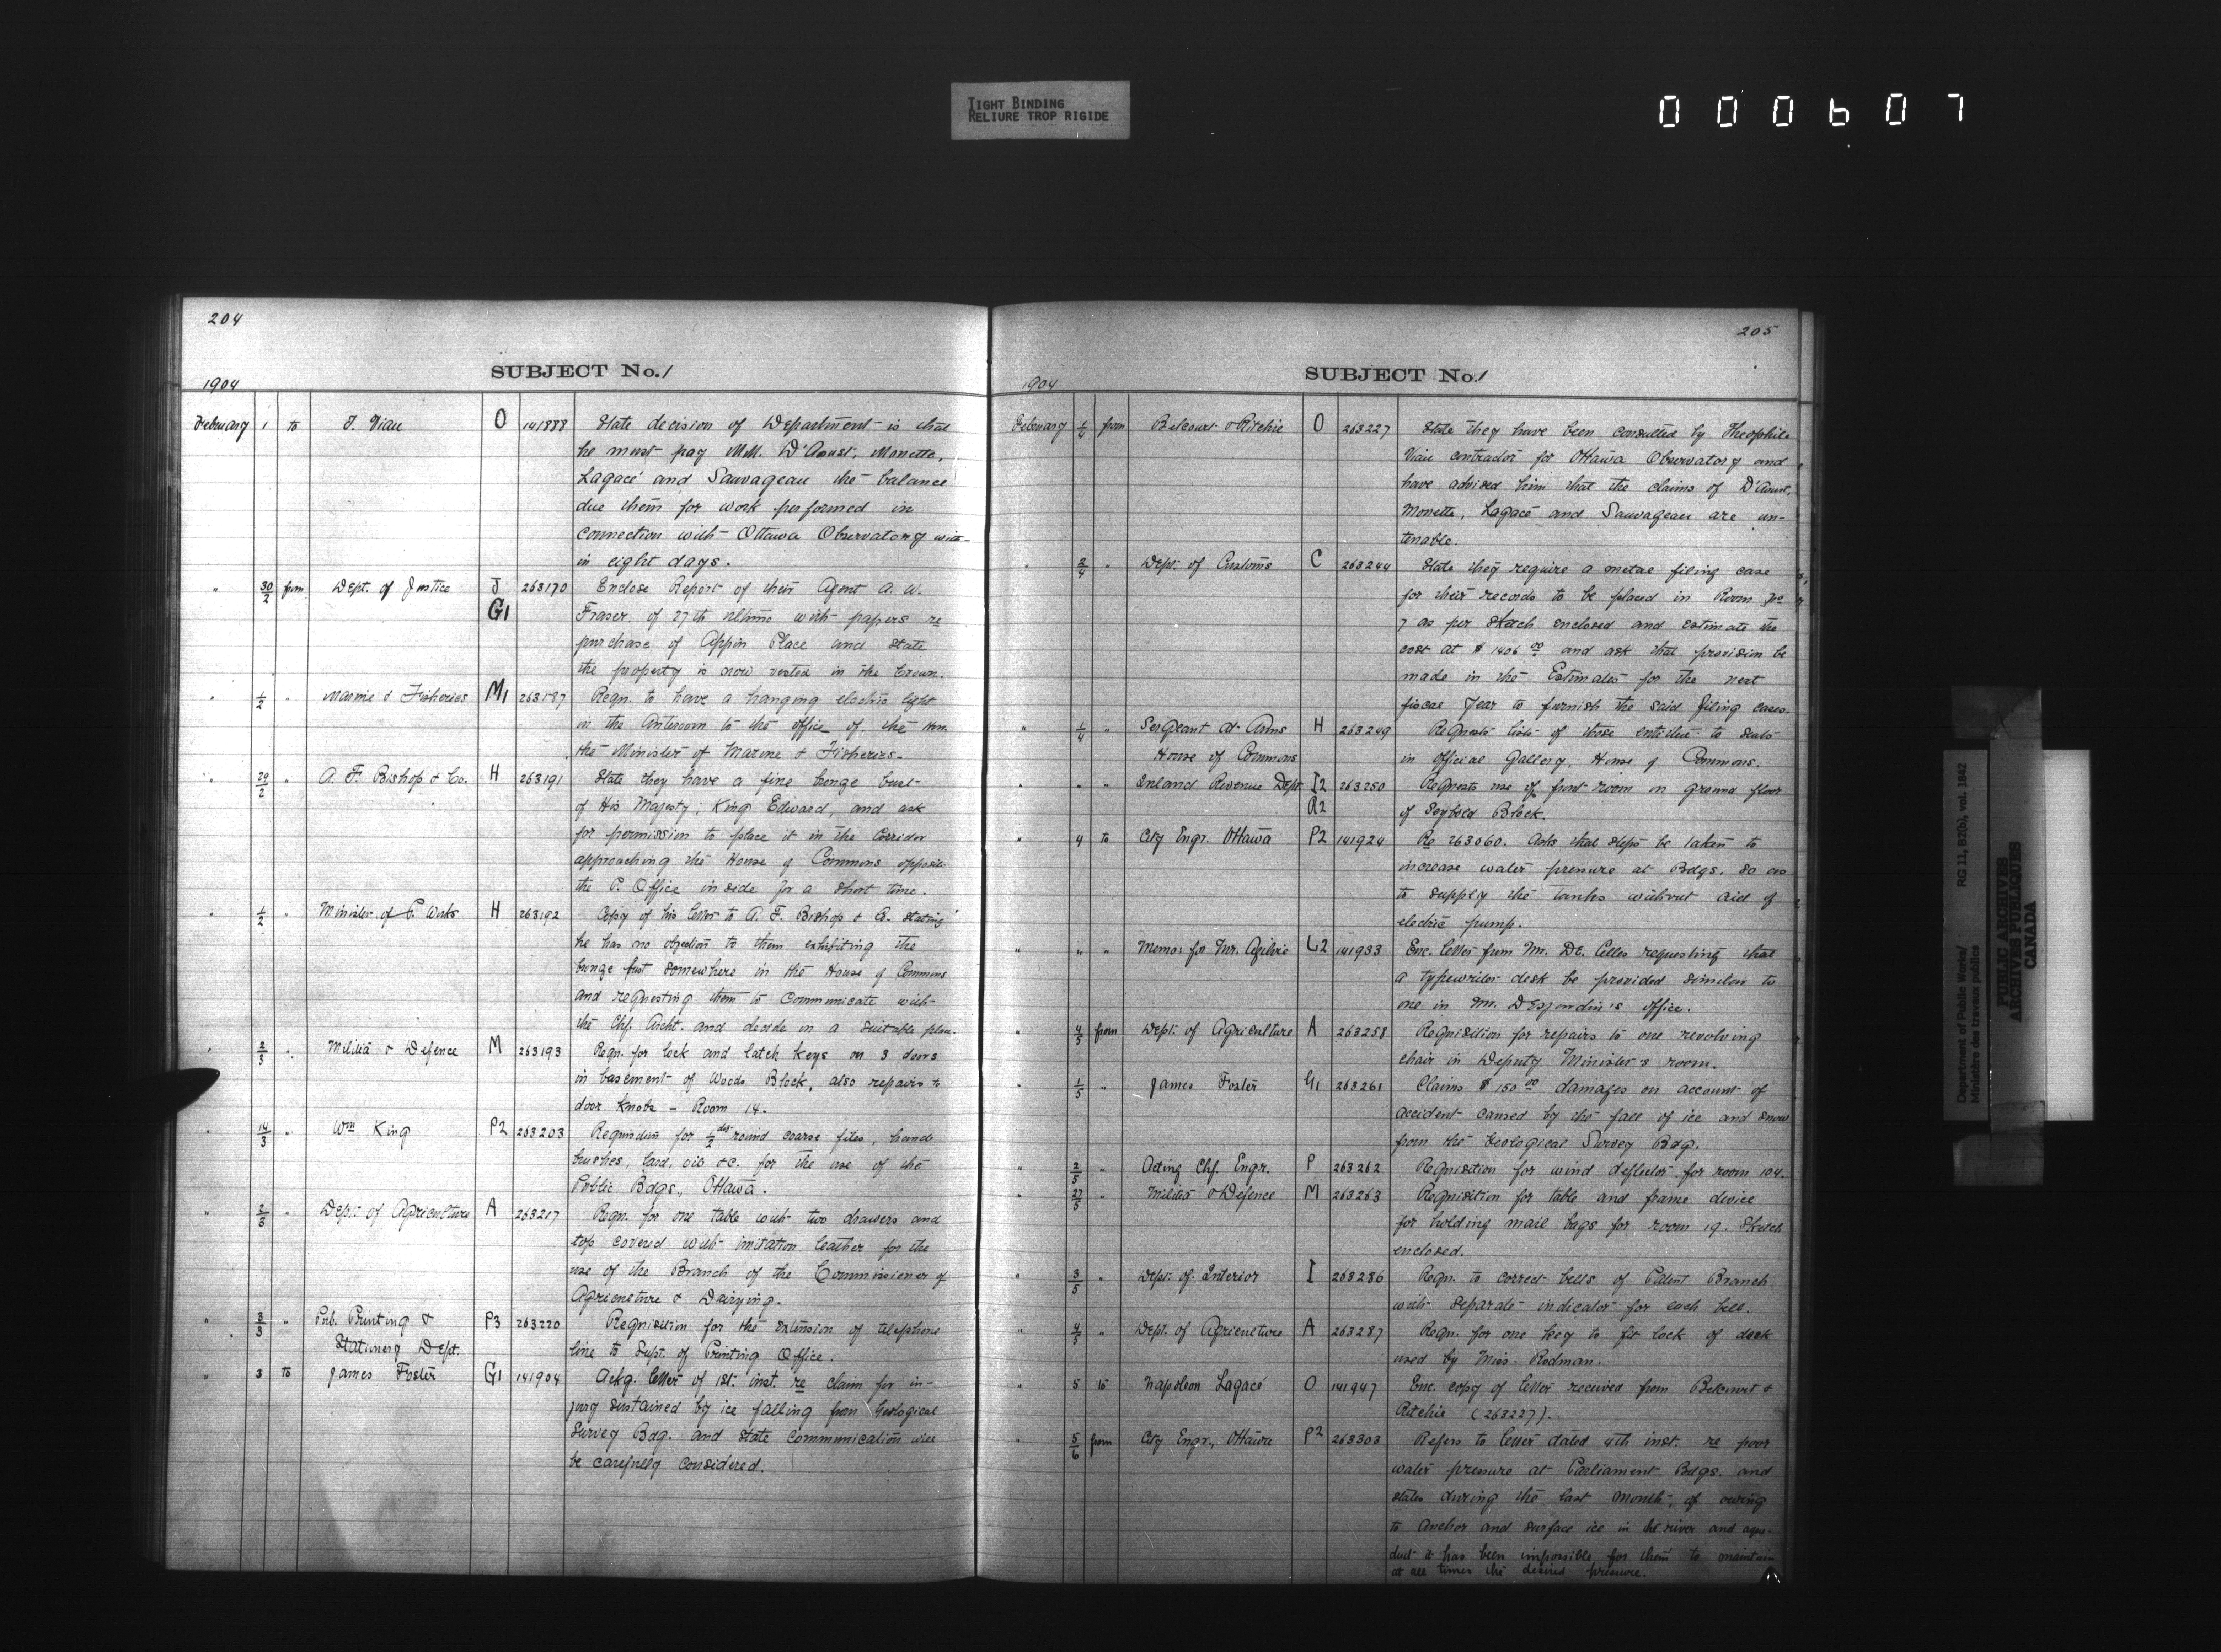 TIGHT BINDING
RELIURE TROP RIGIDE
000607
204
SUBJECT No. 1
1904
February 1 to T. Viau O 141888 State decision of Department is that
he must pay MM. D'Aoust, Monette,
Lagacé and Sauvageau the balance
due them for work performed in
connection with Ottawa Observatory with-
in eight days.
" 30/2 from Dept. of Justice J 263170 Enclose Report of their Agent A. W.
G1 Fraser of 27th ultimo with papers re
purchase of Appin Place and state
the property is now vested in the Crown.
" 1/2 " Marine & Fisheries M1 263187 Reqn. to have a hanging electric light
in the Anteroom to the office of the Hon.
the Minister of Marine & Fisheries.
" 29/2 " A. F. Bishop & Co. H 263191 State they have a fine bronze bust
of His Majesty, King Edward, and ask
for permission to place it in the Corridor
approaching the House of Commons opposite
the P. Office inside for a short time.
" 1/2 " Minister of P. Works H 263192 Copy of his letter to A. F. Bishop & Co. stating
he has no objection to them exhibiting the
bronze bust somewhere in the House of Commons
and requesting them to communicate with
the Chf. Archt. and decide on a suitable place.
" 2/3 " Militia & Defence M 263193 Reqn. for lock and latch keys on 3 doors
in basement of Woods Block, also repairs to
door knobs - Room 14.
" 14/3 " Wm King P2 263203 Requisition for 1/2 doz round coarse files, hand
brushes, lard, oil &c. for the use of the
Public Bdgs., Ottawa.
" 2/3 " Dept. of Agriculture A 263217 Reqn. for one table with two drawers and
top covered with imitation leather for the
use of the Branch of the Commissioner of
Agriculture & Dairying.
" 3/3 " Pub. Printing & P3 263220 Requisition for the extension of telephone
Stationery Dept. line to Supt. of Printing Office.
" 3 to James Foster G1 141904 Ackg. letter of 1st. inst. re claim for in-
jury sustained by ice falling from Geological
Survey Bdg. and state communication will
be carefully considered.
205
SUBJECT No. 1
1904
February 1/4 from Belcourt & Ritchie O 263227 State they have been consulted by Theophile
Viau contractor for Ottawa Observatory and
have advised him that the claims of D'Aoust,
Monette, Lagacé and Sauvageau are un-
tenable.
" 3/4 " Dept. of Customs C 263244 State they require a metal filing case
for their records to be placed in Room No
7 as per sketch enclosed and estimate the
cost at $1406 00 and ask that provision be
made in the Estimates for the next
fiscal year to furnish the said filing cases.
" 1/4 " Sergeant at Arms H 263249 Requests list of those entitled to seats
House of Commons in official Gallery, House of Commons.
" " " Inland Revenue Dept. I2 263250 Requests use of front room on ground floor
R2 of Seybold Block.
" 4 to City Engr. Ottawa P2 141924 Re 263060. Asks that steps be taken to
increase water pressure at Bdgs. so as
to supply the tanks without aid of
electric pump.
" " " Memo: for Mr. Ogilvie L2 141933 Enc. letter from Mr. De Celles requesting that
a typewriter desk be provided similar to
one in Mr. Desjardin's office.
" 4/5 from Dept. of Agriculture A 263258 Requisition for repairs to one revolving
chair in Deputy Minister's room.
" 1/5 " James Foster G1 263261 Claims $150 00 damages on account of
accident caused by the fall of ice and snow
from the Geological Survey Bdg.
" 2/5 " Acting Chf. Engr. P 263262 Requisition for wind deflector for room 104.
" 27/5 " Militia & Defence M 263263 Requisition for table and frame device
for holding mail bags for room 19. Sketch
enclosed.
" 3/5 " Dept. of Interior I 263286 Reqn. to correct bells of Patent Branch
with separate indicator for each bell.
" 4/5 " Dept. of Agriculture A 263287 Reqn. for one key to fit lock of desk
used by Miss. Rodman.
" 5 to Napoleon Lagacé O 141947 Enc. copy of letter received from Belcourt &
Ritchie (263227).
" 5/6 from City Engr., Ottawa P2 263303 Refers to letter dated 4th inst. re poor
water pressure at Parliament Bdgs. and
states during the last month, of owing
to anchor and surface ice in the river and aque-
duct it has been impossible for them to maintain
at all times the desired pressure.
Department of Public Works/ RG 11, B2(b), vol. 1842
Ministère des travaux publics
PUBLIC ARCHIVES
ARCHIVES PUBLIQUES
CANADA